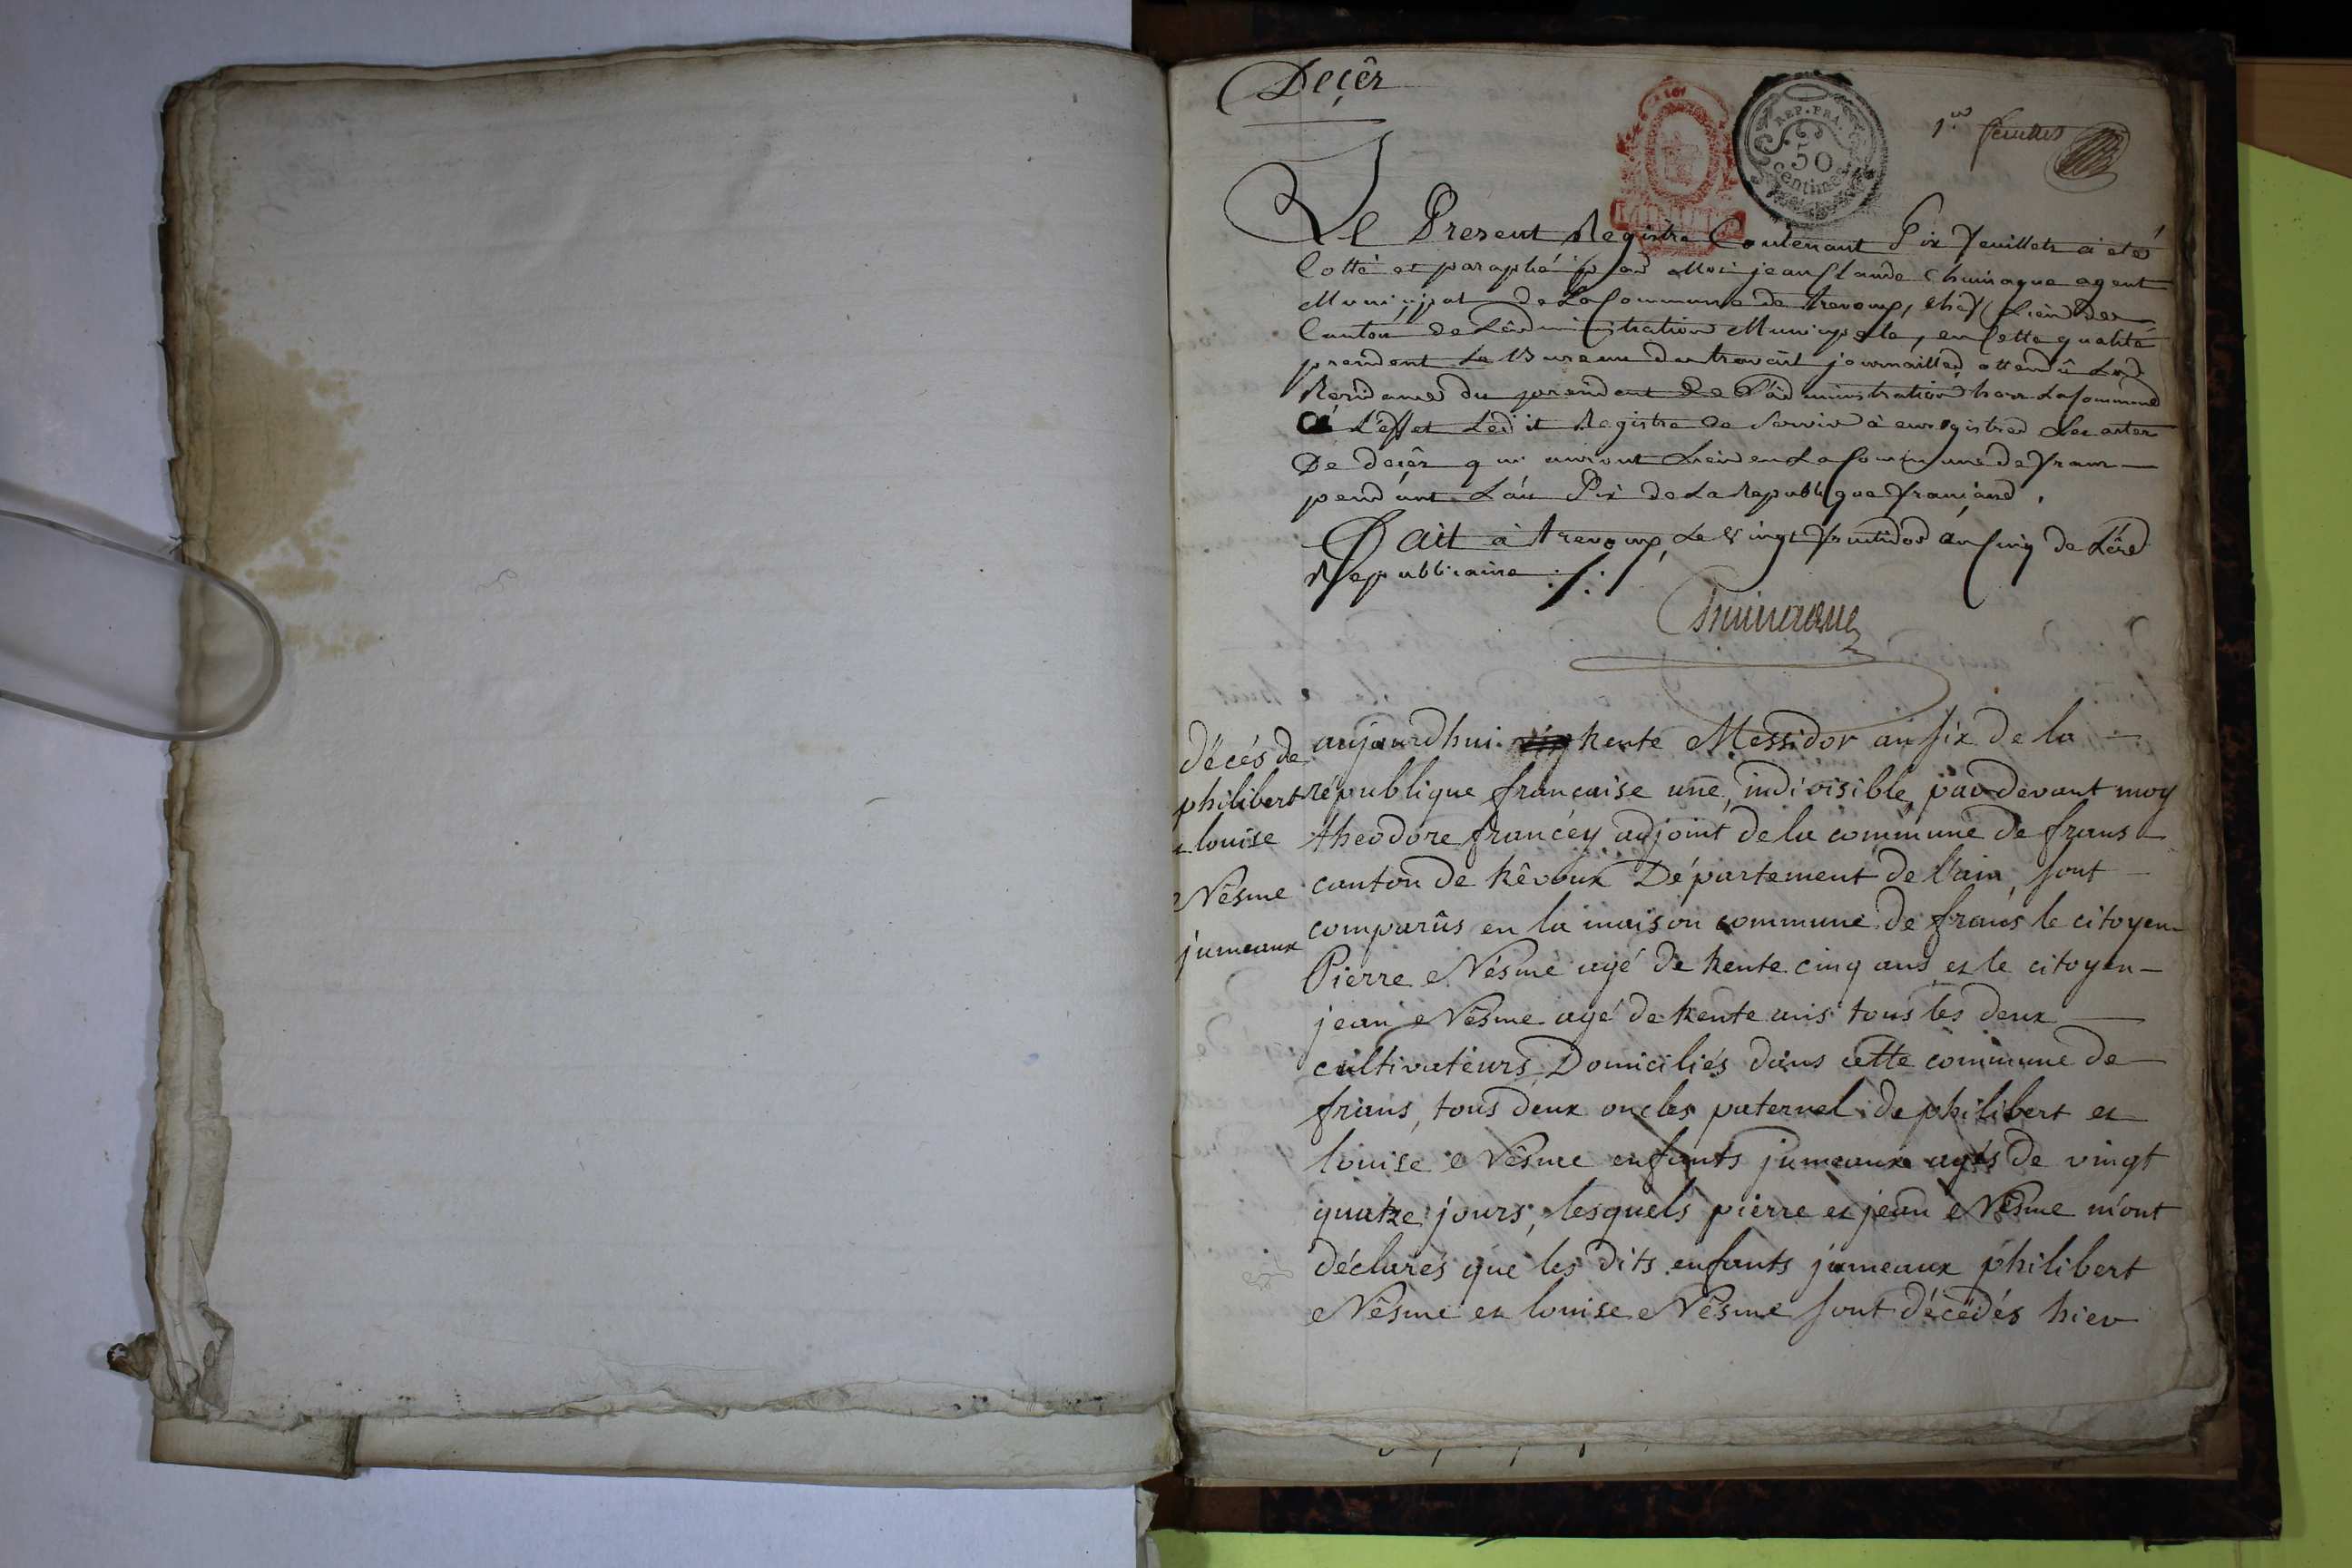 Deçês
1er feuillet
REP. FRA.
50
centimes
Le Present Registre Contenant Six feuillets à été
Cotté et paraphé par Moi jean Claude Chuinague agent
Municipal de La Commune de trevoux, chef Lieu du
Canton de L'administration Municipale, en Cette qualité
president Le Bureau du travail journailler, attendû La
Residance du president de L'administration hors La Commune
à L'effet Ledit Registre de Servir à enregistrer Les actes
De deçês qui auront Lieu en La Commune de frans
pendant L'an Six de La Republique française.
Fait à trevoux, Le vingt fructidor an Cinq de L'êre
Republicaine ./.
Chuinague
Décés de
philibert
& louise
Nêsme
jumeaux
aujourdhui trente Messidor an six de la
république francaise une, indivisible, par devant moy
theodore francey adjoint de la commune de frans
canton de trêvoux Département de l'ain, sont
comparûs en la maison commune de frans le citoyen
Pierre Nésme agé de trente cinq ans et le citoyen
jean Nêsme agé de trente ans tous les deux
cultivateurs Domiciliés dans cette commune de
frans, tous deux oncles paternel de philibert et
louise Nêsme enfants jumeaux agés de vingt
quatre jours, lesquels pierre et jean Nêsme m'ont
déclarés que les dits enfants jumeaux philibert
Nêsme et louise Nêsme sont décédés hier